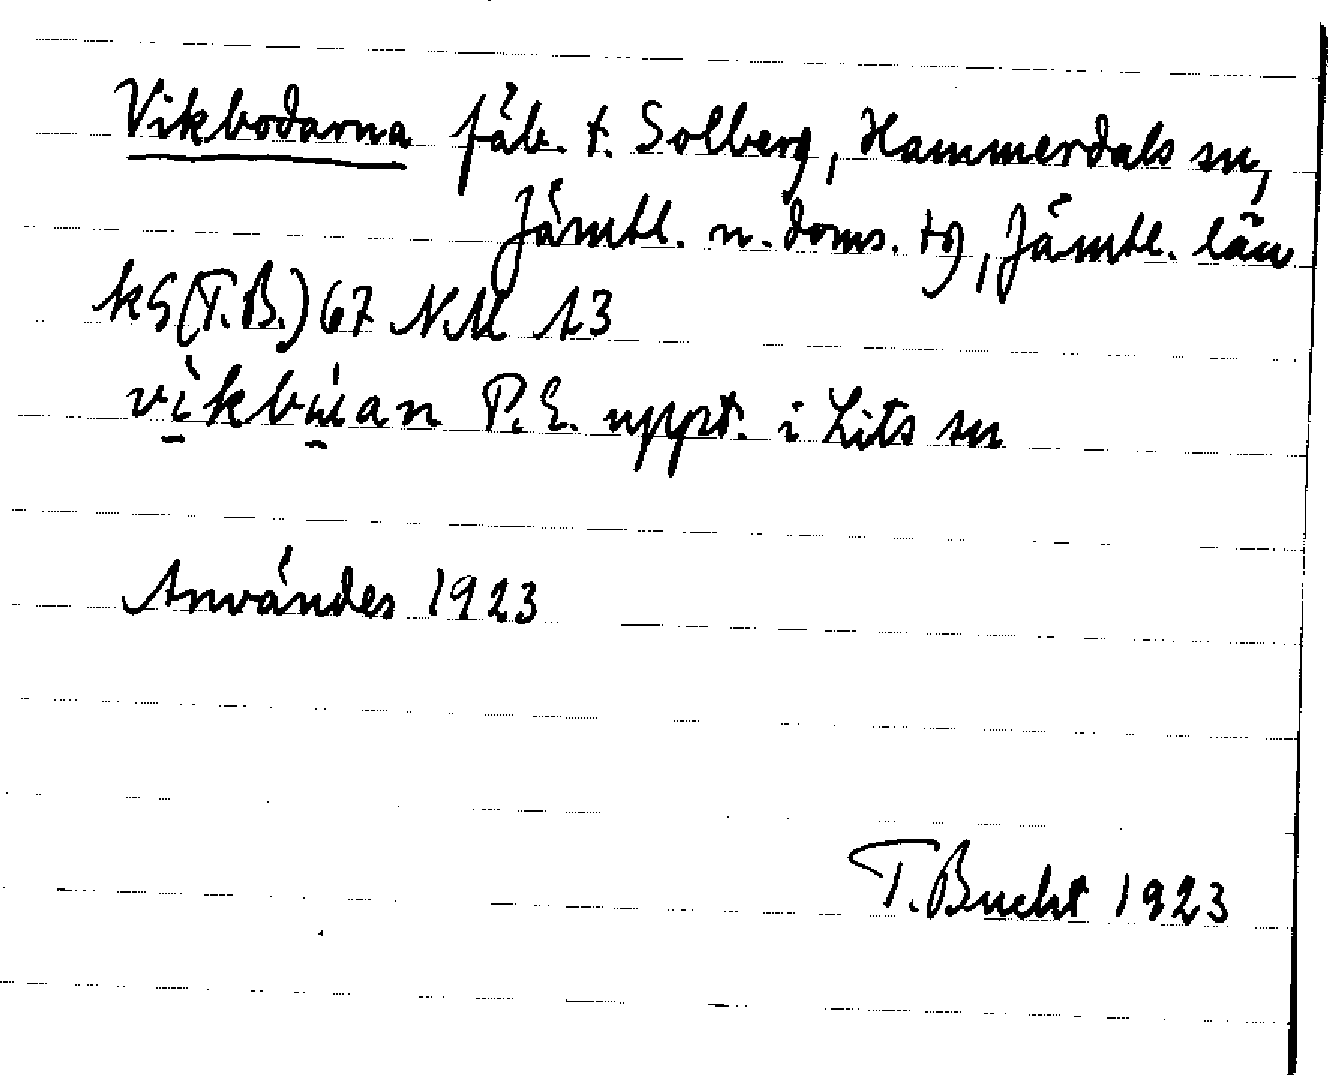 Vikbodarna fäb. t. Solberg, Hammerdals sn,
Jämtl. n. doms. tg, Jämtl. län
kG(T.B.)67 NM 13
P.E. uppt. i Lits sn
Användes 1923
T. Bucht 1923